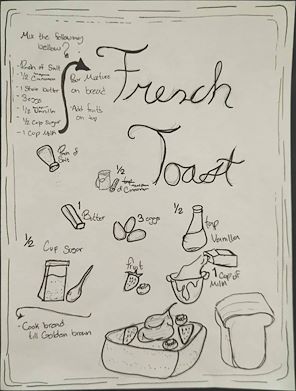 Mix the following
bellow?
- Pinch of Salt
- 1/2
- 1 Stick butter
- 3 eggs
- 1/2 Vanilla
- 1/2 Cup Sugar
- 1 Cup Milk
Pour Mixture
on bread
Add fruits
on top
Fresch
Toast
Pinch of
Salt
1/2
of Cinnamon
1
Butter
3 eggs
1/2
tsp
Vanilla
1/2
Cup Sugar
fruit
1 Cup of
Milk
- Cook bread
till Golden brown